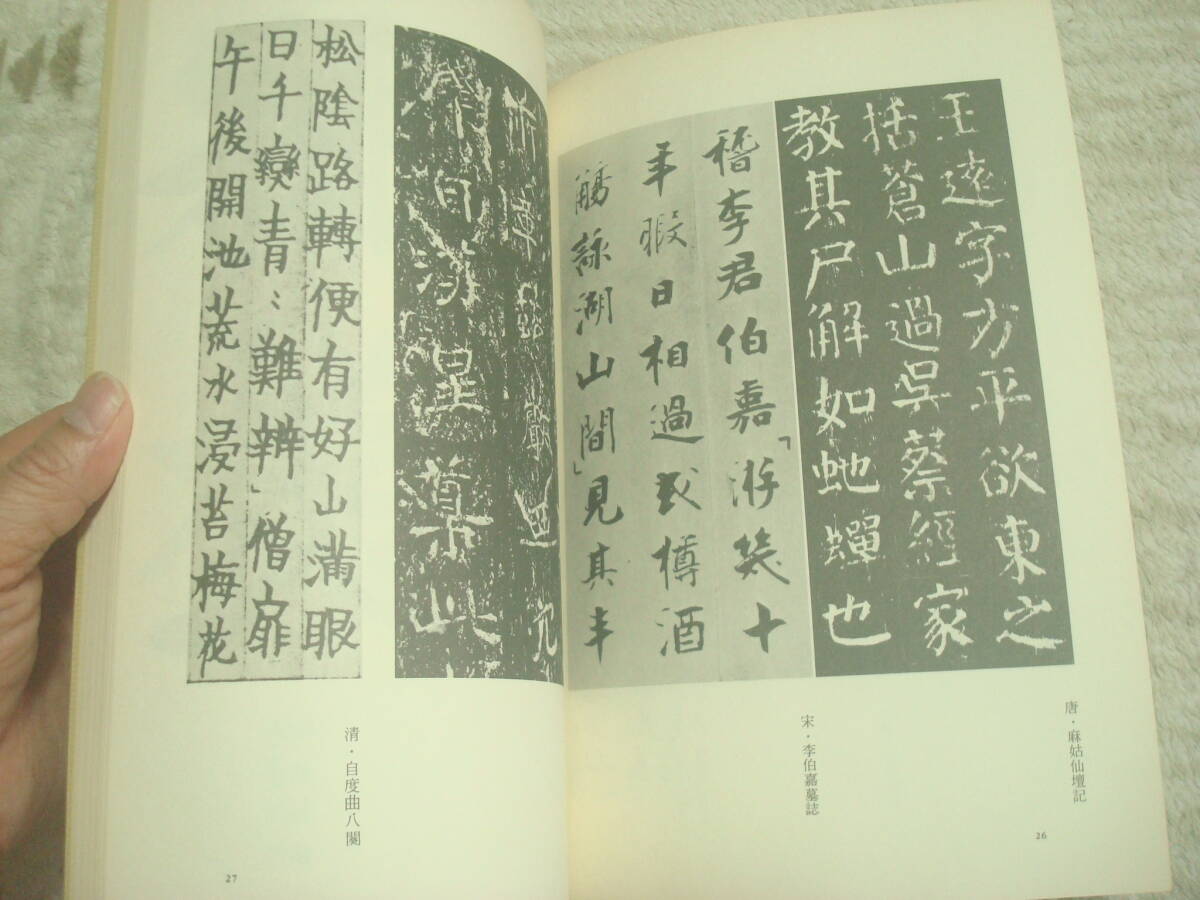 王遠字方平欲東之
括蒼山過吳蔡經家
教其尸解如虵蟬也
唐・麻姑仙壇記
稽李君伯嘉「游幾十
年暇日相過或樽酒
觴詠湖山間」見其丰
宋・李伯嘉墓誌
26
松陰路轉便有好山滿眼
日千變青〻難辨」僧扉
午後開池荒水浸苔梅花
清・自度曲八闋
27